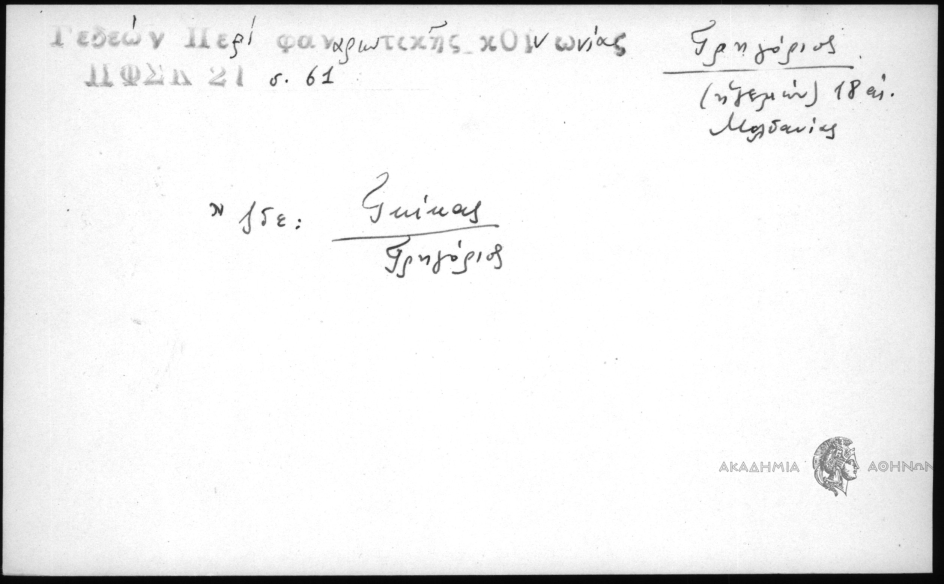 Γεδεών Περί φαναριωτικῆς κοινωνίας
ΠΦΣΚ 21 σ. 61
Γρηγόριος
(ἡγεμών) 18 αἰ.
Μολδανίας
ἴδε: Γκίκας
Γρηγόριος
ΑΚΑΔΗΜΙΑ ΑΘΗΝΩΝ